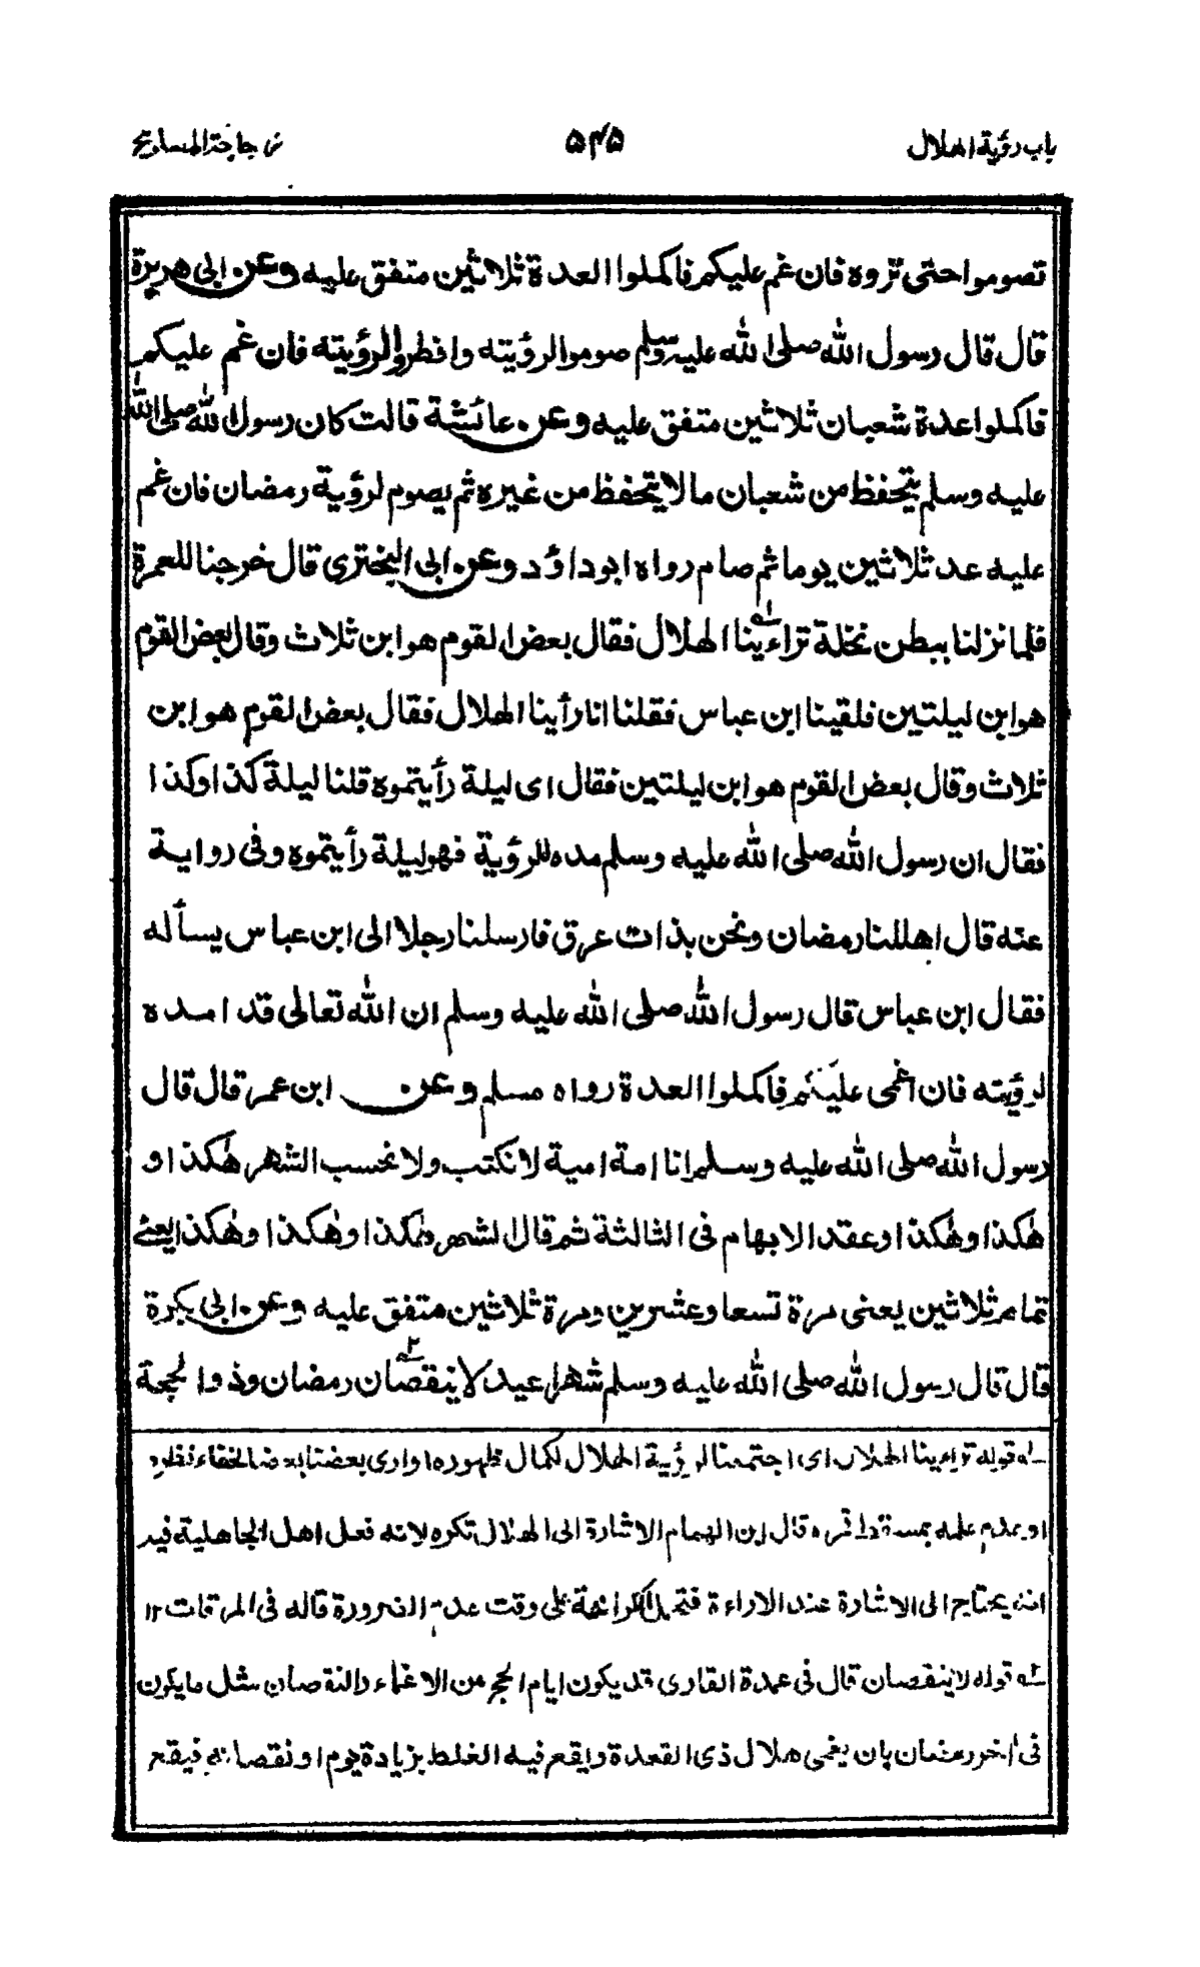 باب رؤية الهلال ۵۴۵ زجاجة المصابيح
تصوموا حتى تروه فان غم عليكم فاكملوا العدة ثلاثين متفق عليه وعن ابى هريرة
قال قال رسول الله صلى الله عليه وسلم صوموا لرؤيته وافطروا لرؤيته فان غم عليكم
فاكملوا عدة شعبان ثلاثين متفق عليه وعن عائشة قالت كان رسول الله صلى الله
عليه وسلم يتحفظ من شعبان ما لا يتحفظ من غيره ثم يصوم لرؤية رمضان فان غم
عليه عد ثلاثين يوما ثم صام رواه ابوداؤد وعن ابى البختري قال خرجنا للعمرة
فلما نزلنا ببطن نخلة تراءينا له الهلال فقال بعض القوم هو ابن ثلاث وقال بعض القوم
هو ابن ليلتين فلقينا ابن عباس فقلنا انا رأينا الهلال فقال بعض القوم هو ابن
ثلاث وقال بعض القوم هو ابن ليلتين فقال اى ليلة رأيتموه قلنا ليلة كذا وكذا
فقال ان رسول الله صلى الله عليه وسلم مده للرؤية فهو ليلة رأيتموه وفى رواية
عنه قال اهللنا رمضان ونحن بذات عرق فارسلنا رجلا الى ابن عباس يسأله
فقال ابن عباس قال رسول الله صلى الله عليه وسلم ان الله تعالى قد امده
لرؤيته فان اغمى عليكم فاكملوا العدة رواه مسلم وعن ابن عمر قال قال
رسول الله صلى الله عليه وسلم انا امة امية لا نكتب ولا نحسب الشهر هٰكذا و
هٰكذا وهٰكذا وعقد الابهام فى الثالثة ثم قال الشهر هٰكذا وهٰكذا وهٰكذا يعنى
تمام ثلاثين يعنى مرة تسعا وعشرين ومرة ثلاثين متفق عليه وعن ابى بكرة
قال قال رسول الله صلى الله عليه وسلم شهرا عيد لا ينقصان ٢ه رمضان وذو الحجة
له قوله تراءينا الهلال اى اجتمعنا لرؤية الهلال لكمال ظهوره او ارى بعضنا بعضا لخفاء نظره
او عدم علمه بمسقط قمره قال ابن الهمام الاشارة الى الهلال تكره لانه فعل اهل الجاهلية فيه
انه يحتاج الى الاشارة عند الاراءة فتحمل الكراهة على وقت عدم الضرورة قاله فى المرقات ١٢
٢ه قوله لا ينقصان قال فى عمدة القارى قد يكون ايام الحج من الاغماء والنقصان مثل ما يكون
فى آخر رمضان بان يغمى هلال ذى القعدة ويقع فيه الغلط بزيادة يوم او نقصانه فيقع